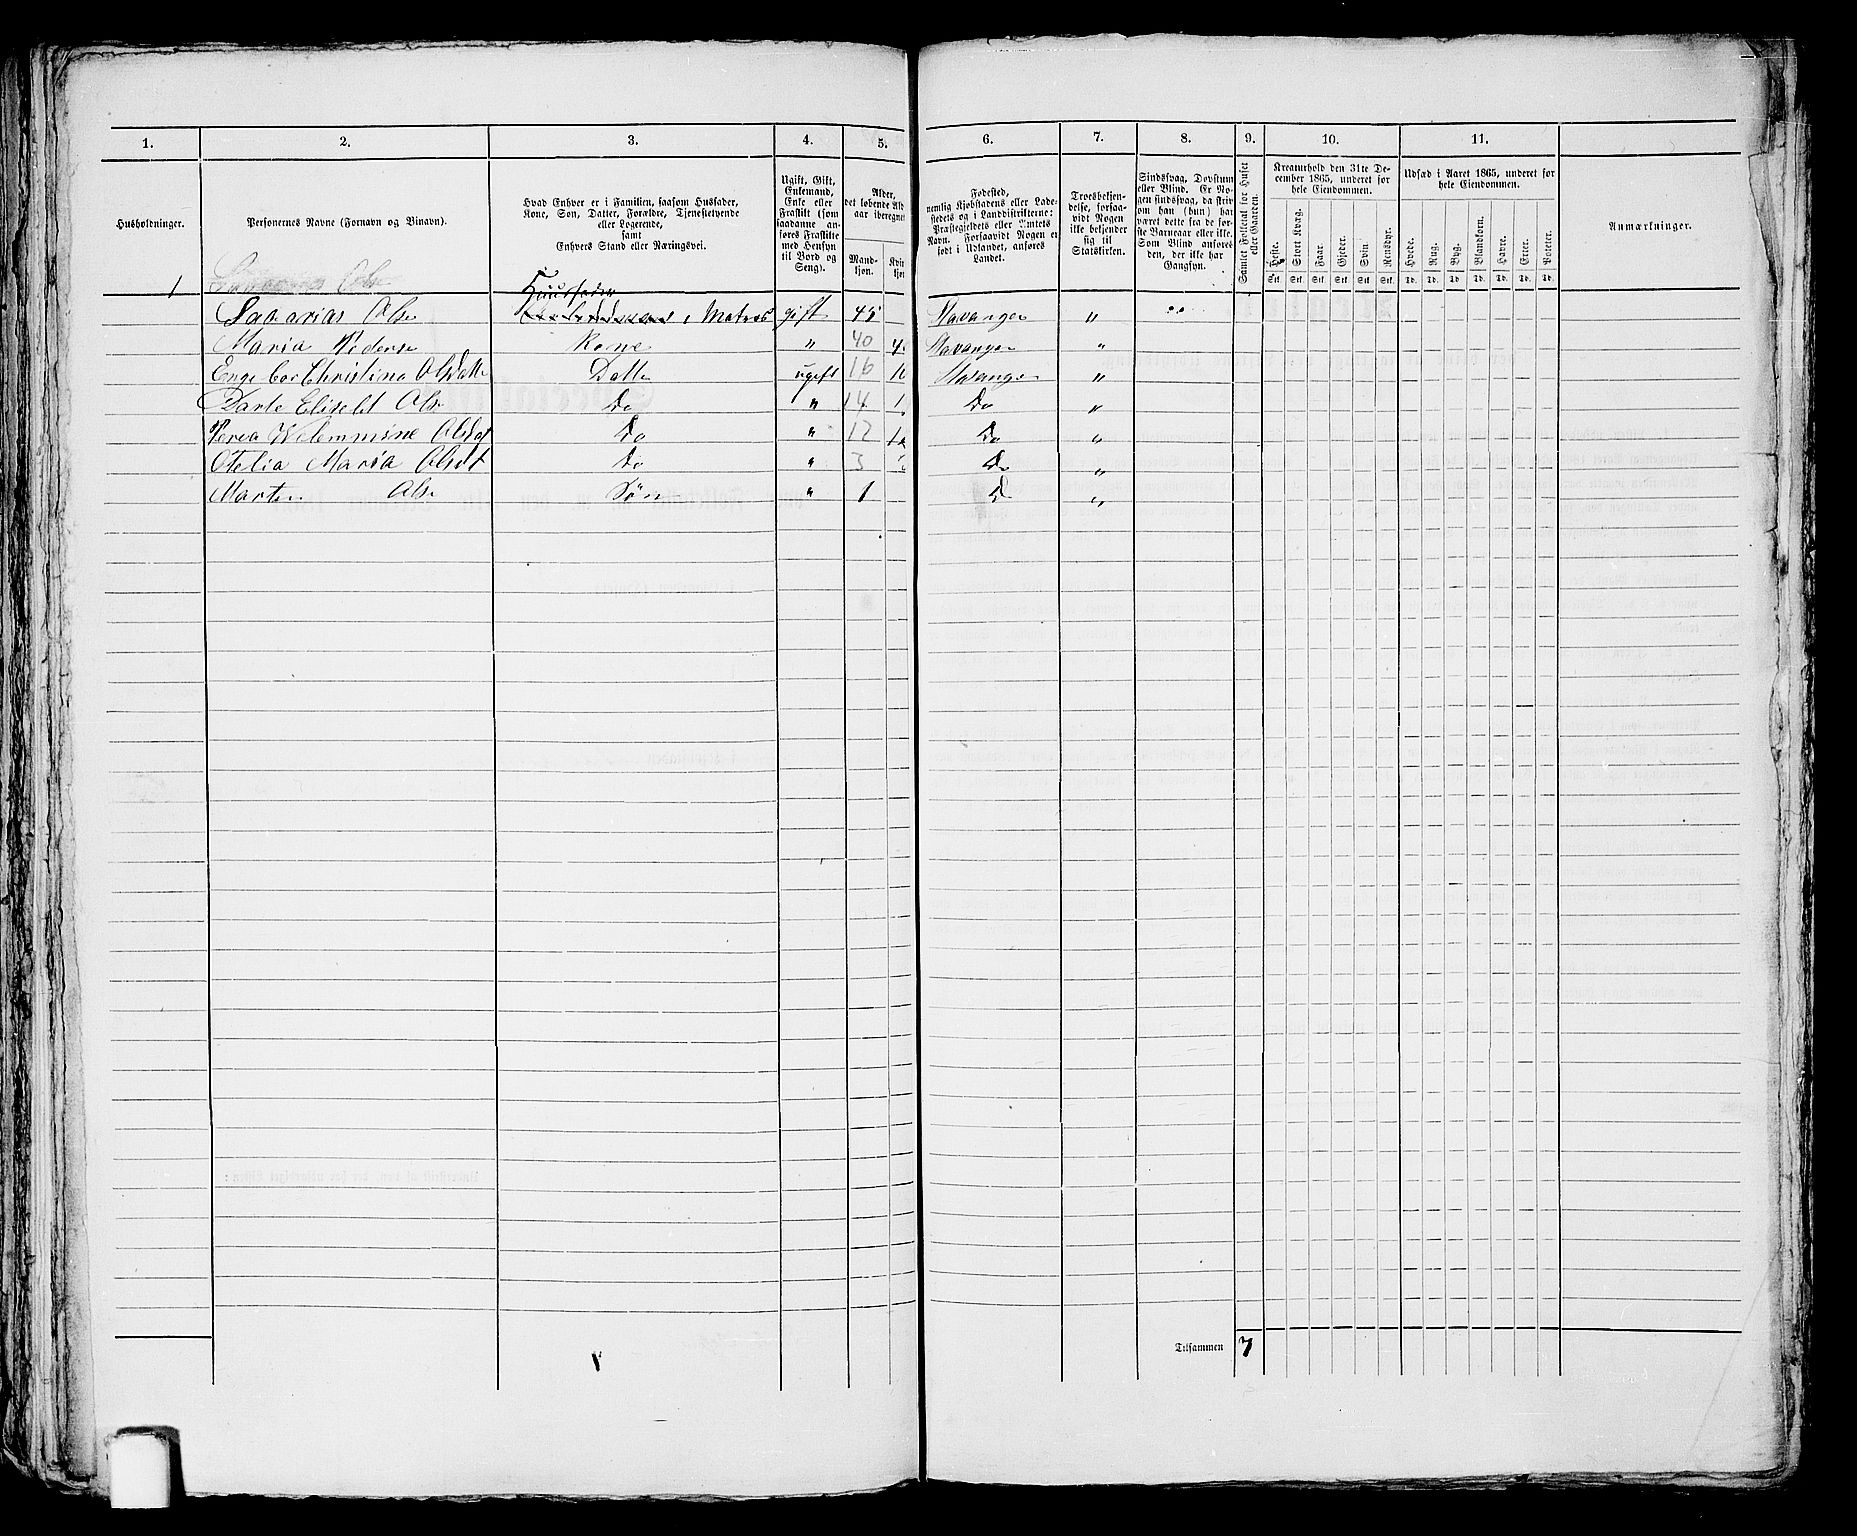 1. 2. 3. 4. 5. 6. 7. 8. 9. 10. 11.
Husholdninger.
Personernes Navne (Fornavn og Binavn).
Hvad Enhver er i Familien, saasom Husfader,
Kone, Søn, Datter, Forældre, Tjenestetyende
eller Logerende,
samt
Enhvers Stand eller Næringsvei.
Ugift, Gift,
Enkemand,
Enke eller
Fraskilt (som
saadanne an-
føres Fraskilte
med Hensyn
til Bord og
Seng).
Alder,
det løbende Ald
aar iberegnet
Mand-
kjøn.
Kvi
kjø
Fødested,
nemlig Kjøbstadens eller Lade-
stedets og i Landdistrikterne:
Præstegjeldets eller Amtets
Navn. Forsaavidt Nogen er
født i Udlandet, anføres
Landet.
Troesbekjen-
delse, forsaa-
vidt Nogen
ikke bekjender
sig til
Statskirken.
Sindssvag, Døvstum
eller Blind. Er No-
gen sindssvag, da skriv
om han (hun) har
været dette fra de før-
ste Barneaar eller ikke.
Som Blind anføres
den, der ikke har
Gangsyn.
Samlet Folketal for Huset
eller Gaarden.
Kreaturhold den 31te De-
cember 1865, underet for
hele Eiendommen.
Heste. Stort Kvæg. Faar. Gjeder. Svin. Rensdyr.
Stk. Stk. Stk. Stk. Stk. Stk.
Udsæd i Aaret 1865, underet for
hele Eiendommen.
Hvede. Rug. Byg. Blandkorn. Havre. Erter. Poteter.
Td. Td. Td. Td. Td. Td. Td.
Anmærkninger.
1
Huusfader
Sacarias Olse Matros gift 45 Stavanger „
Maria Pederse Kone „ 40 Stavanger „
Engebor Christina Olsdatte Datte ugift 16 Stavanger „
Darte Elisebt Olse Do „ 14 Do „
Perea Welemmine Olsdat Do „ 12 Do „
Otelia Maria Olsdt Do „ 3 Do „
Marten Olse Søn „ 1 D „
Tilsammen 7